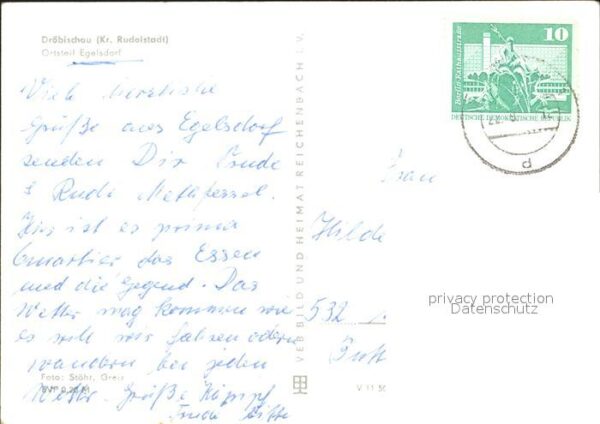 Dröbischau (Kr. Rudolstadt)
Ortsteil Egelsdorf
Viele herzliche
Grüße aus Egelsdorf
senden Dir
& Rudi
Hier ist es prima
Quartier das Essen
und die Gegend. Das
Wetter mag kommen wie
es will wir fahren oder
wandern bei jedem
Wetter. Grüße
Foto: Stöhr, Greiz
EVP 0,20 M
VEB BILD UND HEIMAT REICHENBACH i. V.
V 11 50
10
Berlin-Rathausstraße
DEUTSCHE DEMOKRATISCHE REPUBLIK
d
Frau
Hilde
532
privacy protection
Datenschutz